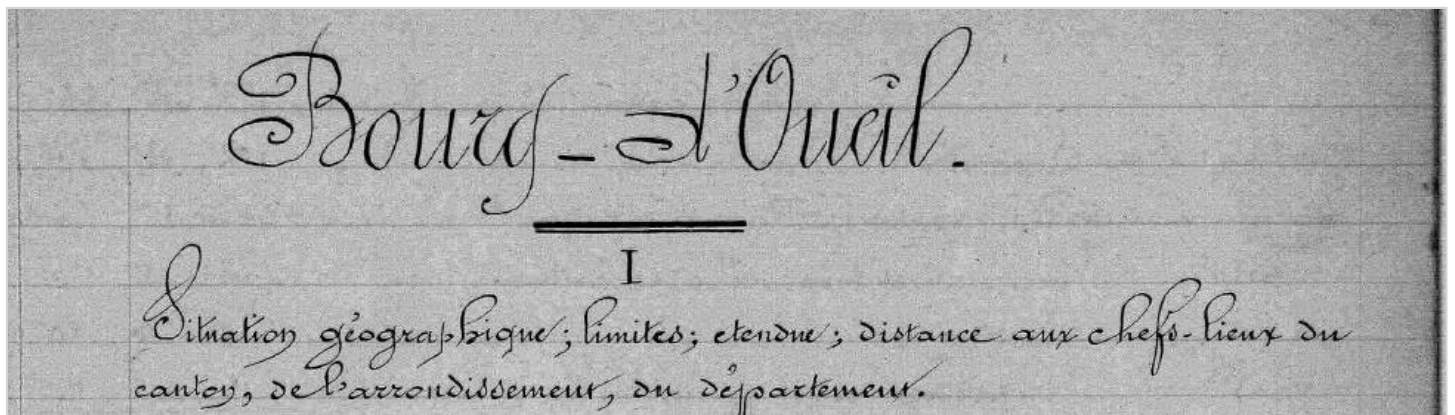 Bourg-d'Oueil.
I
Situation géographique; limites; etendue; distance aux chefs-lieux du
canton, de l'arrondissement, du département.